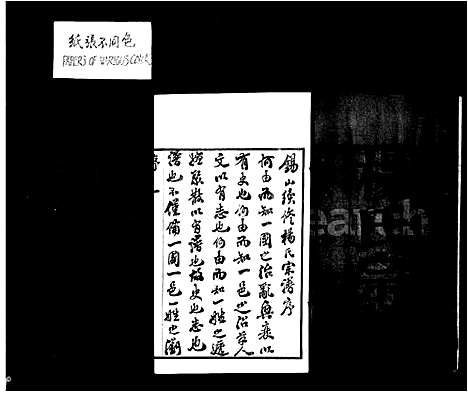 紙張不同色
PAPERS OF VARIOUS COLOR
錫山續修楊氏宗譜序
何由而知一國之治亂興衰以
有史也何由而知一邑之沿革人
文以有志也何由而知一姓之遞
衍聚散以有譜也故史也志也
譜也不僅備一國一邑一姓之
序 一